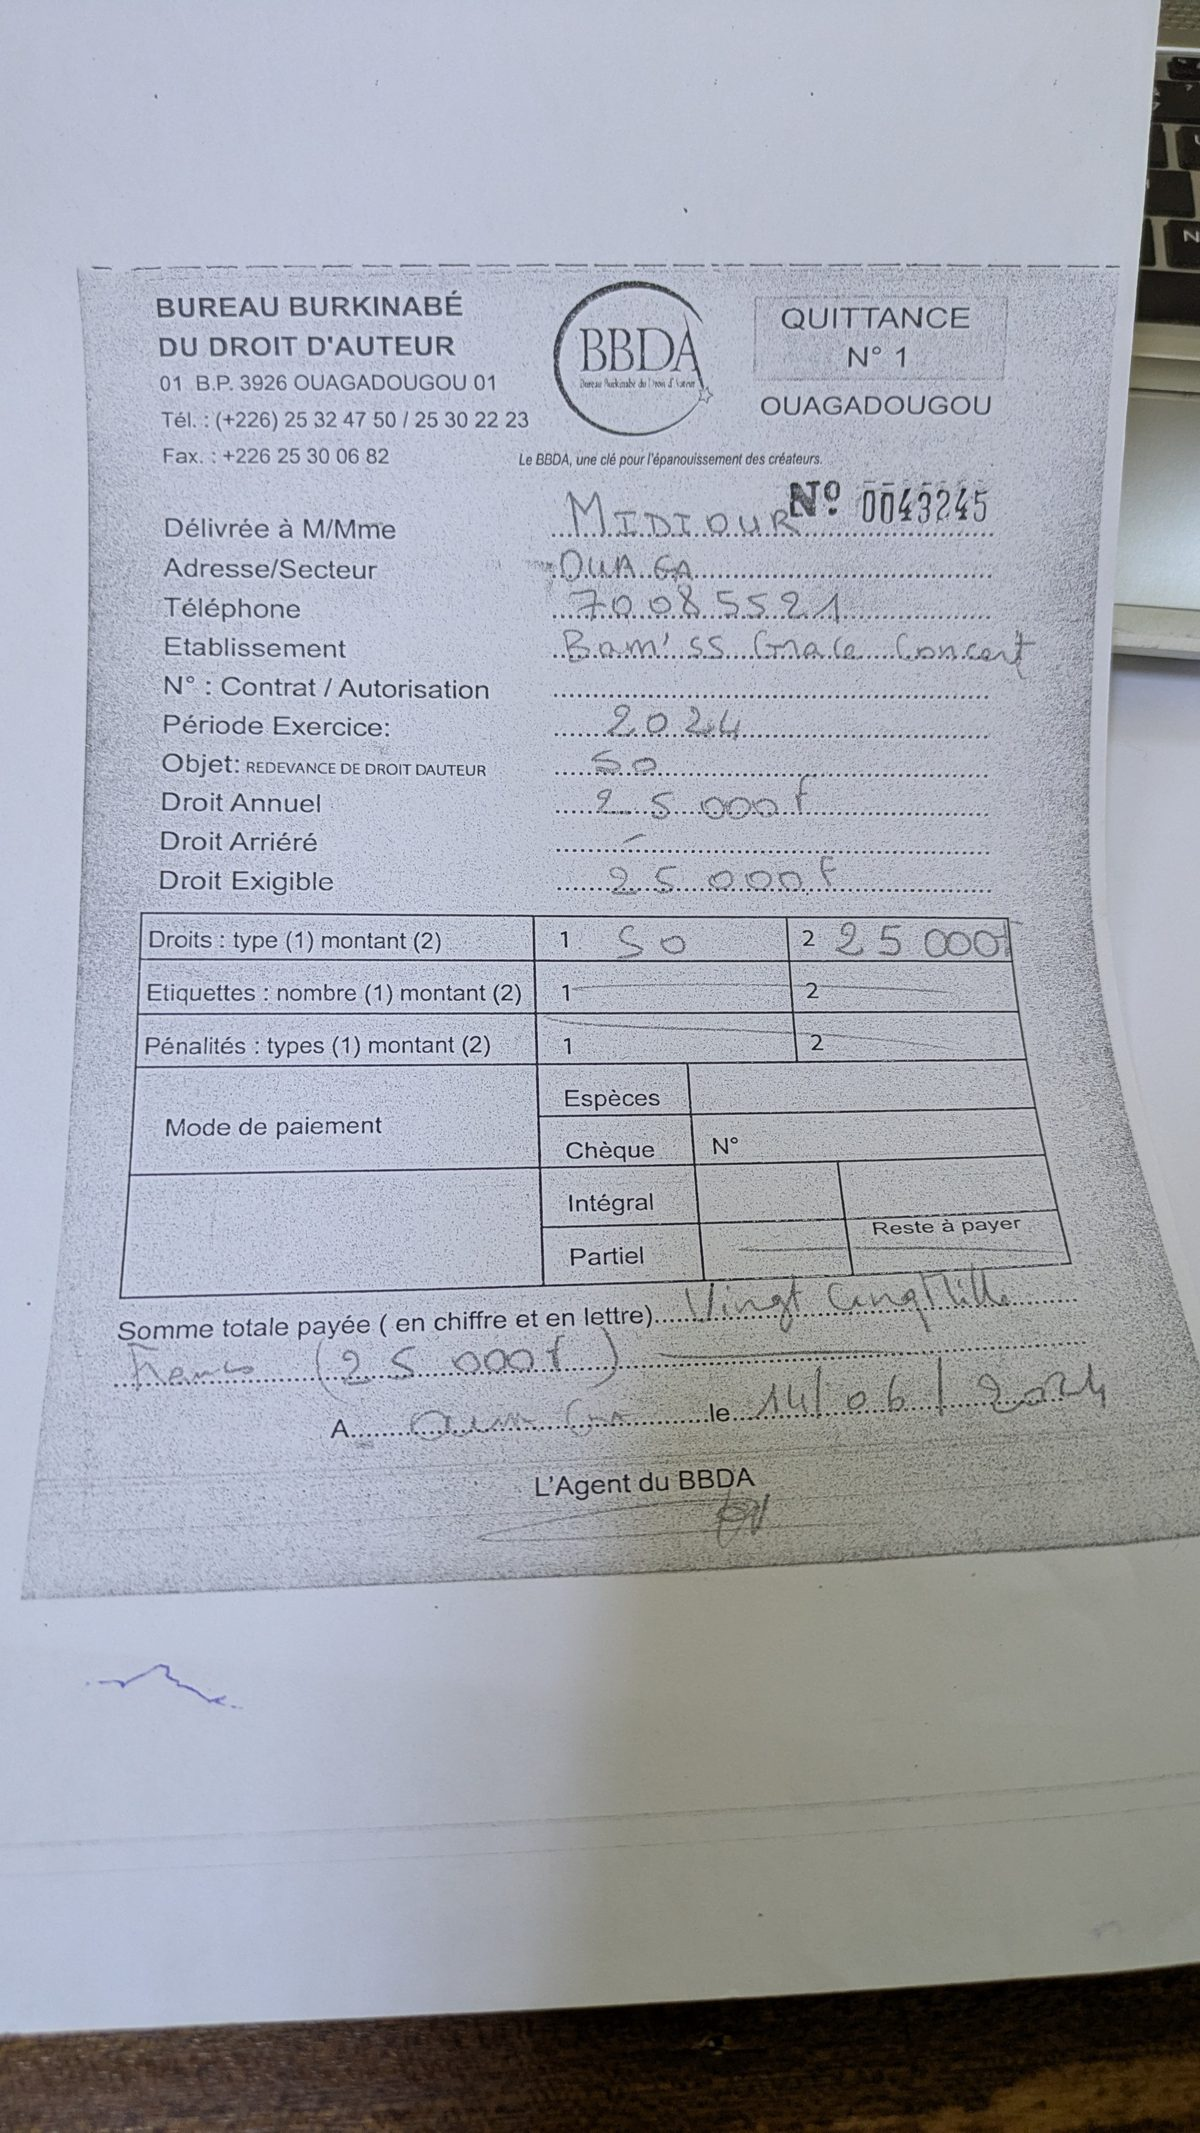 BUREAU BURKINABÉ
DU DROIT D'AUTEUR
01 B.P. 3926 OUAGADOUGOU 01
Tél. : (+226) 25 32 47 50 / 25 30 22 23
Fax. : +226 25 30 06 82
BBDA
Bureau Burkinabé du Droit d'Auteur
Le BBDA, une clé pour l'épanouissement des créateurs.
QUITTANCE
N° 1
OUAGADOUGOU
Nº 0043245
Délivrée à M/Mme MIDIOUR
Adresse/Secteur OUAGA
Téléphone 70085521
Etablissement Bam'ss Grace Concert
N° : Contrat / Autorisation
Période Exercice: 2024
Objet: REDEVANCE DE DROIT DAUTEUR SO
Droit Annuel 25 000f
Droit Arriéré -
Droit Exigible 25 000f
Droits : type (1) montant (2) 1 SO 2 25 000f
Etiquettes : nombre (1) montant (2) 1 2
Pénalités : types (1) montant (2) 1 2
Mode de paiement
Espèces
Chèque N°
Intégral
Partiel Reste à payer
Somme totale payée ( en chiffre et en lettre) Vingt Cinq Mille
Francs (25 000f)
A Ouaga le 14/06/2024
L'Agent du BBDA
N